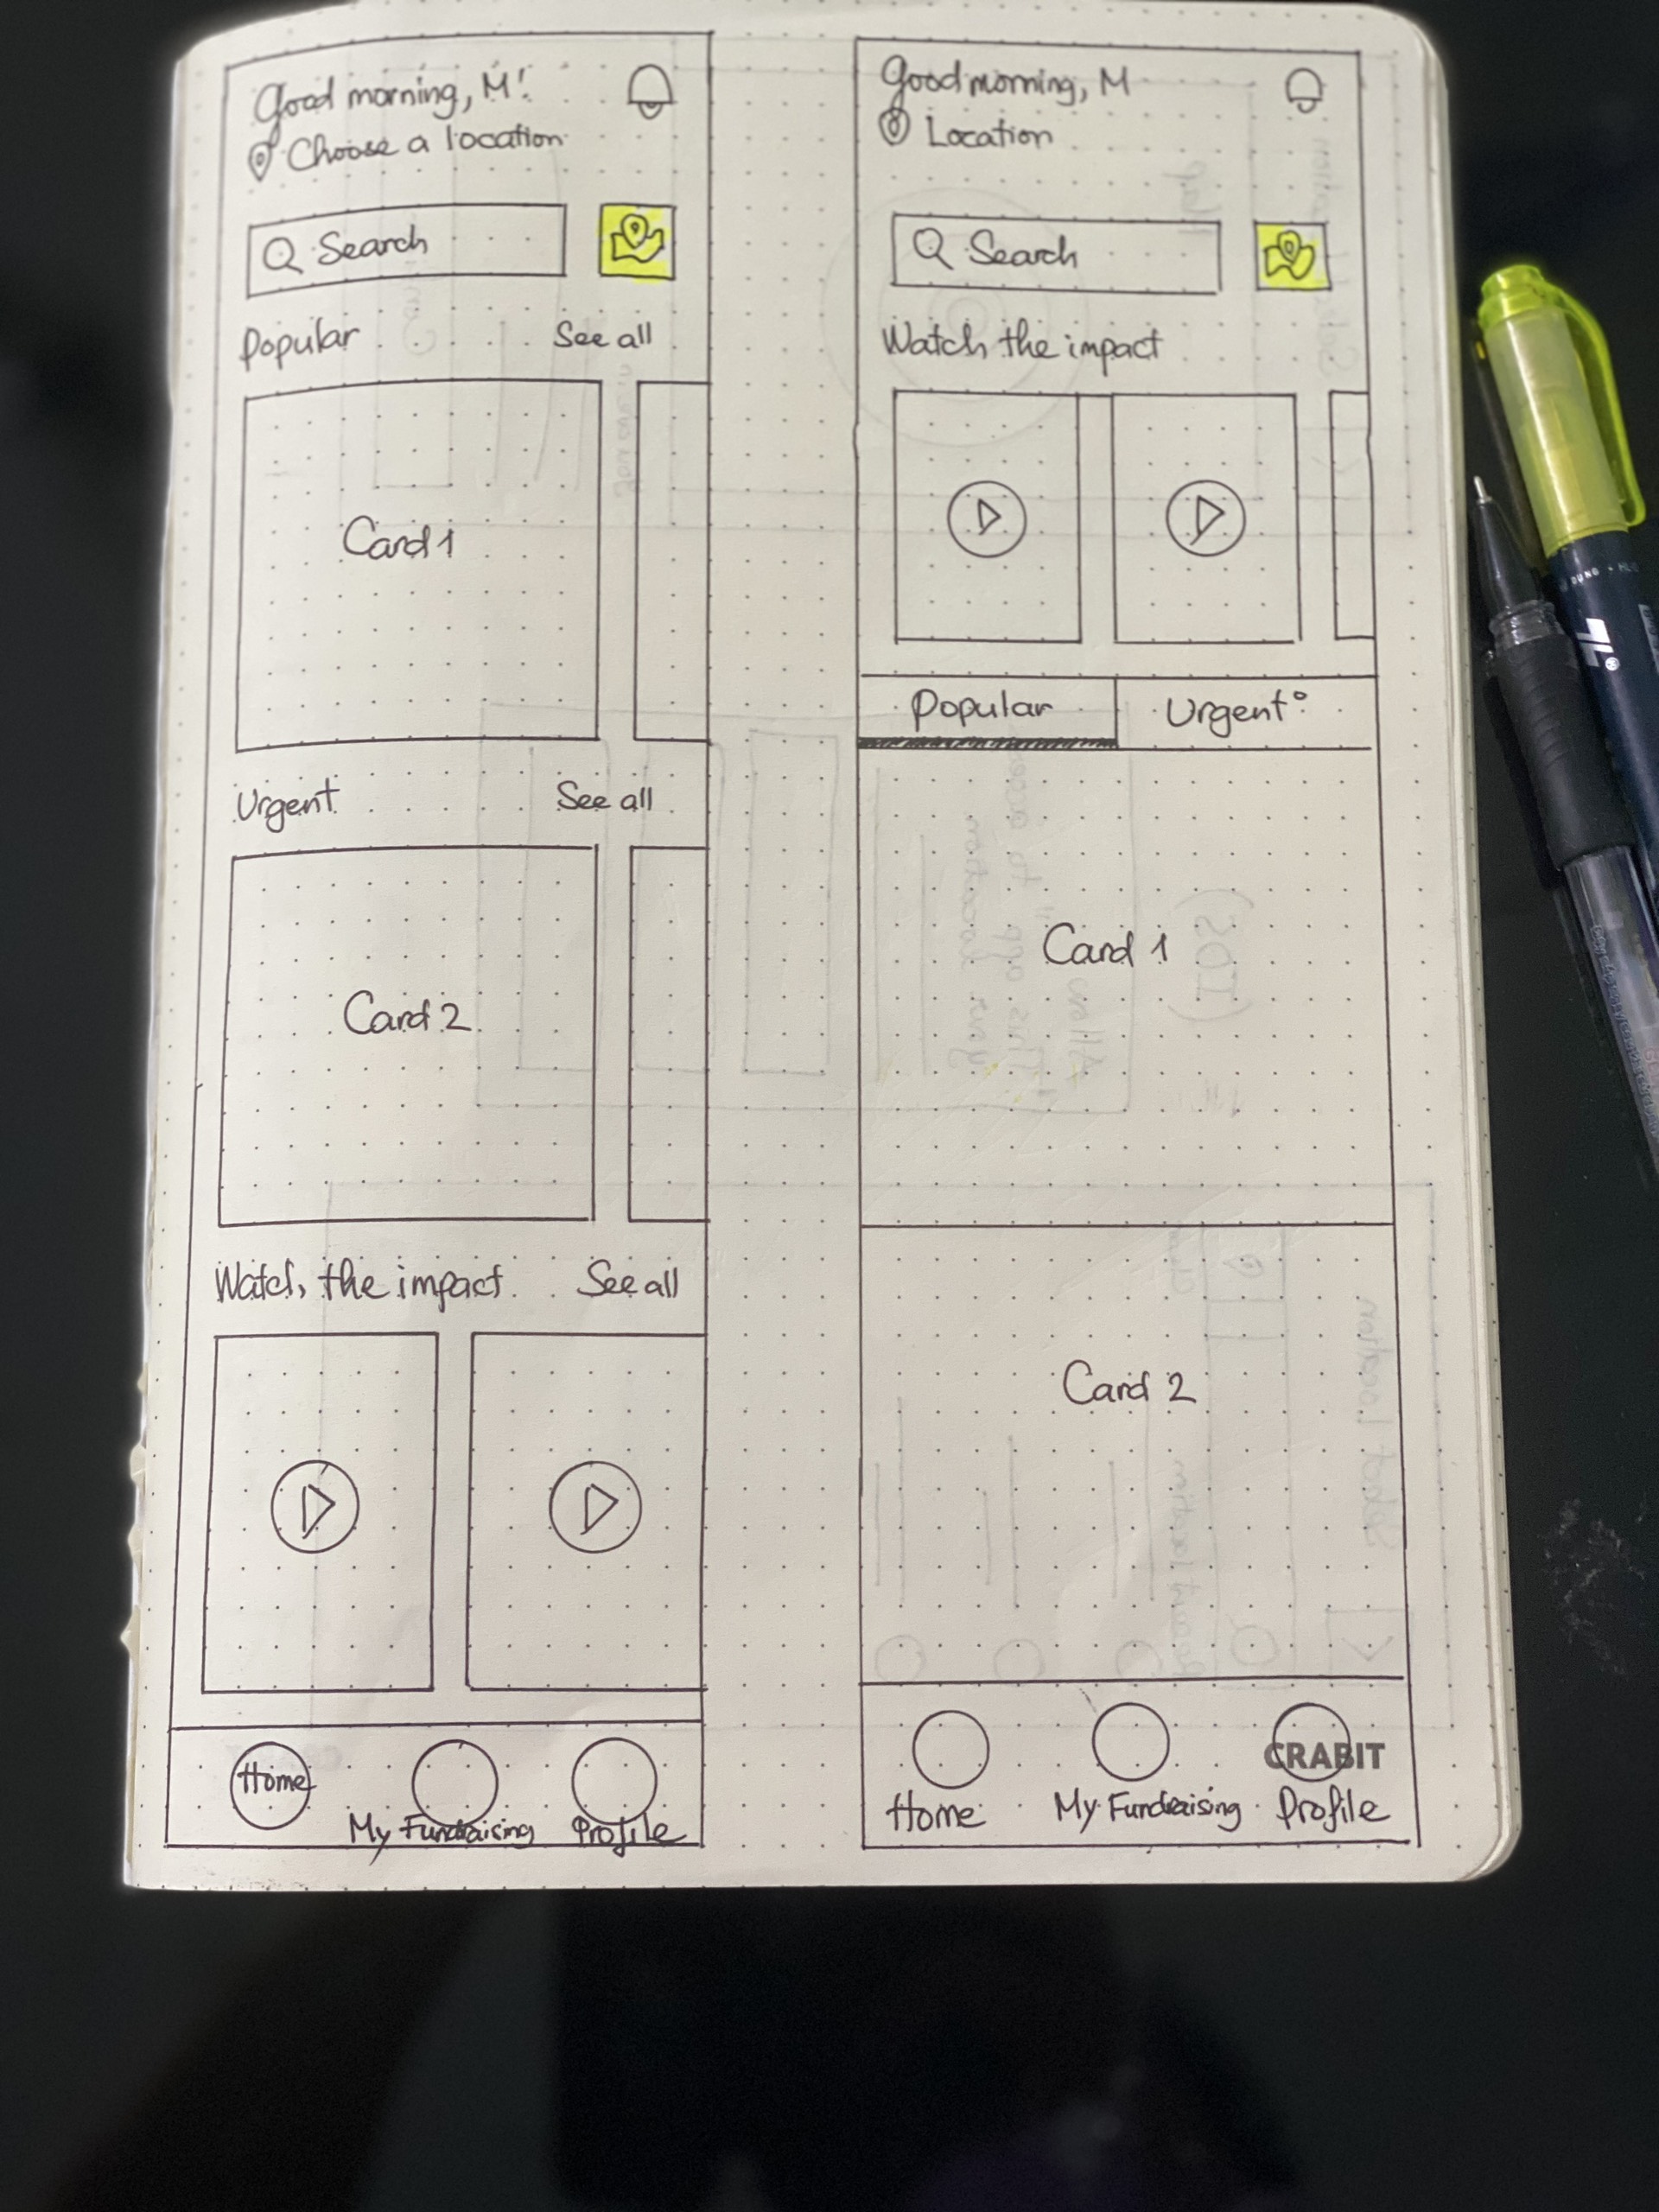 Good morning, M!
Choose a location
Search
Popular See all
Card 1
Urgent See all
Card 2
Watch the impact See all
Home
My Fundraising Profile
Good morning, M
Location
Search
Watch the impact
Popular Urgent
Card 1
Card 2
CRABIT
Home My Fundraising Profile